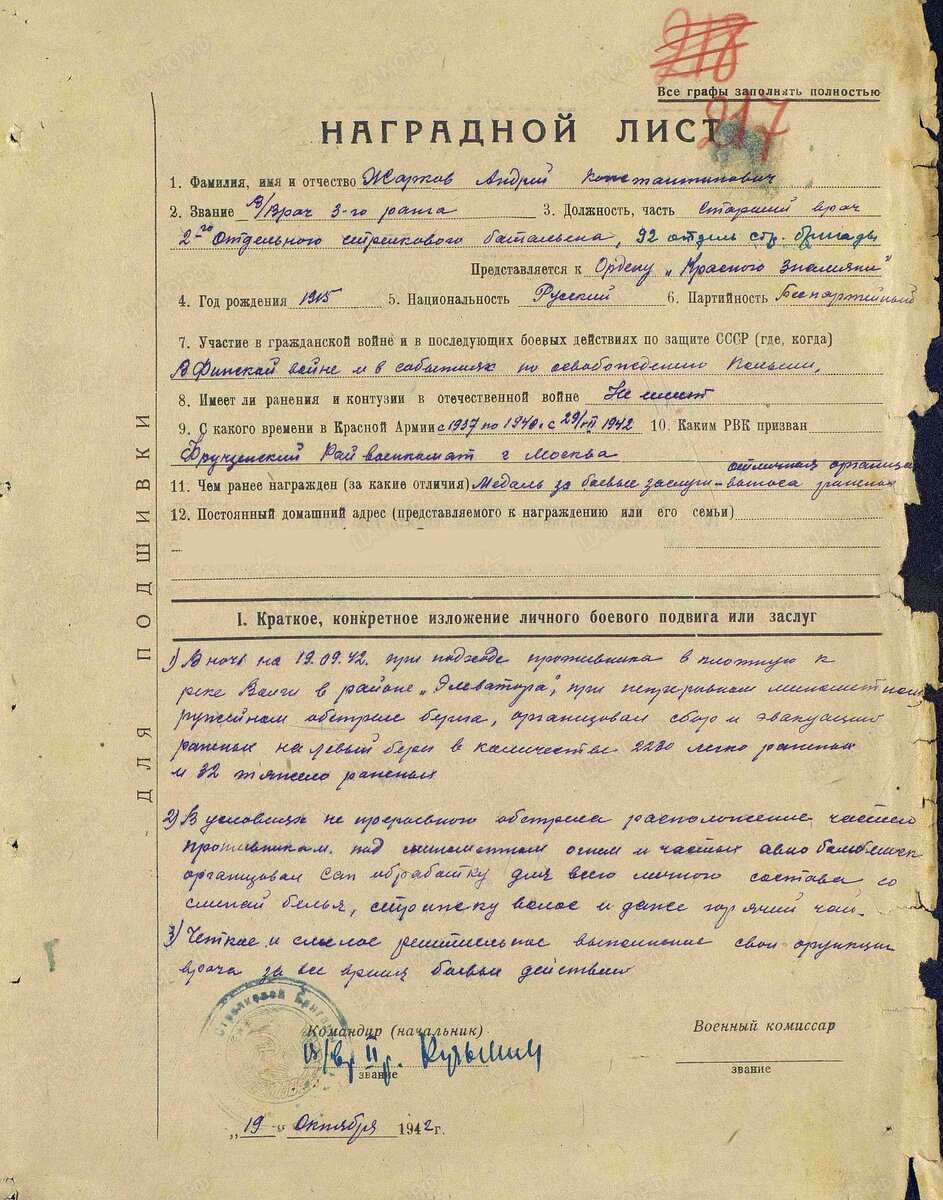 218
Все графы заполнять полностью
217
НАГРАДНОЙ ЛИСТ
1. Фамилия, имя и отчество Жарков Андрей Константинович
2. Звание В/Врач 3-го ранга 3. Должность, часть Старший врач
2-го Отдельного стрелкового батальена, 92 отдель стр. бригады
Представляется к Ордену „Красного Знамяни"
4. Год рождения 1915 5. Национальность Русский 6. Партийность Беспартейный
7. Участие в гражданской войне и в последующих боевых действиях по защите СССР (где, когда)
В Финской войне и в событиях по освобождению Польши,
8. Имеет ли ранения и контузии в отечественной войне Не имеет
9. С какого времени в Красной Армии с 1937 по 1940 г. с 29/VII 1942 10. Каким РВК призван
Фрунзенский Райвоенкомат г Москва
отличная организа
11. Чем ранее награжден (за какие отличия) Медаль за боевые заслуги – выноса раненых
12. Постоянный домашний адрес (представляемого к награждению или его семьи)
ДЛЯ ПОДШИВКИ
I. Краткое, конкретное изложение личного боевого подвига или заслуг
1) В ночь на 19.09.42. при подходе противника в плотную к
реке Волги в районе „Элеватора", при непрерывном минометном
ружейном обстреле берега, организовал сбор и эвакуацию
раненых на левый берег в количестве 2230 легко раненых
и 32 тяжело раненых
2) В условиях не прерывного обстрела расположение частей
противником. под минометным огнем и частых авио бомбежек
организовал сан обработку для всего личного состава со
сменой белья, стрижку волос и даже горячий чай.
3) Четкое и смелое решительное выполнение свои функции
врача за все время боевых действий
Стрелковой Бригады
Командир (начальник) Военный комиссар
В/вр II р. Кузьмин
звание звание
„19" Октября 1942 г.